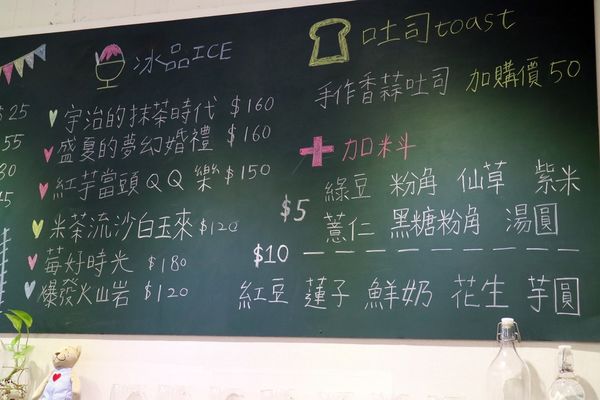 冰品ICE
宇治的抹茶時代 $160
盛夏的夢幻婚禮 $160
紅芋當頭QQ樂 $150
朱茶流沙白玉來 $120
莓好時光 $180
爆發火山岩 $120
吐司toast
手作香蒜吐司 加購價50
+ 加料
綠豆 粉角 仙草 紫米
$5
薏仁 黑糖粉角 湯圓
$10
紅豆 蓮子 鮮奶 花生 芋圓
$25
55
80
45